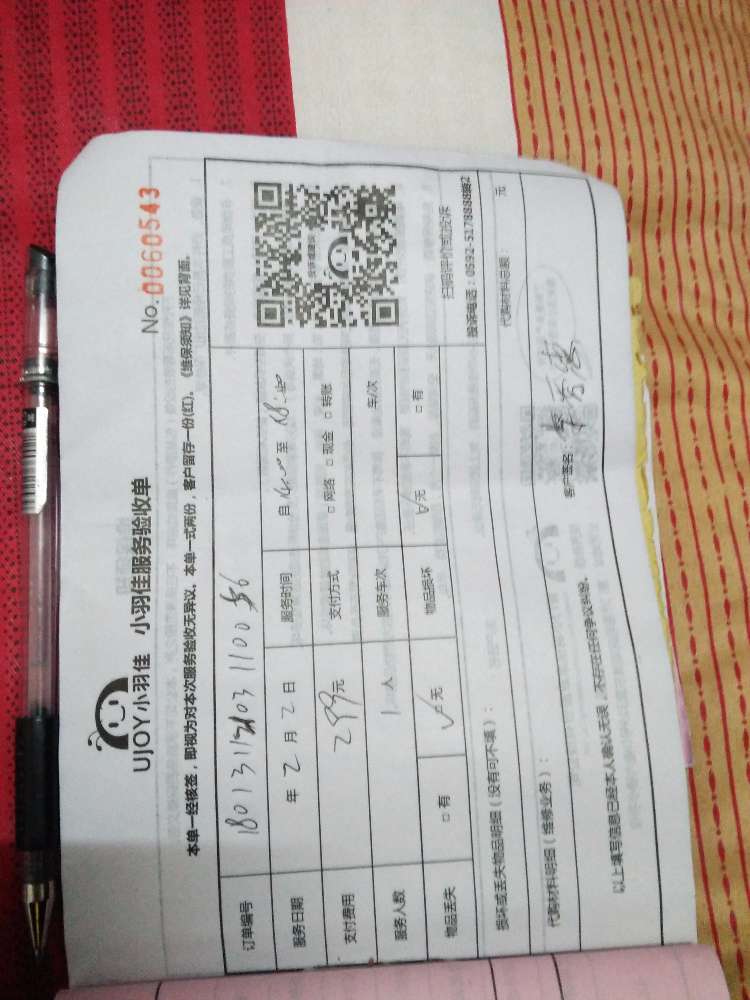 UJOY小羽佳 小羽佳服务验收单
No. 0060543
本单一经核签，即视为对本次服务验收无异议。本单一式两份，客户留存一份(红)。《维保须知》详见背面。
订单编号
服务日期 年 2 月 2 日 服务时间 自 至 18:00
支付费用 299元 支付方式 □ 网络 □ 现金 □ 转账
服务人数 1 人 服务车次 车/次
物品丢失 □ 有 ✓ □ 无 物品损坏 ✓ □ 无 □ 有
扫码评价或投诉
投诉电话：0592-5178888转2
损坏或丢失物品明细（没有可不填）：
代购材料明细（维修业务）： 代购材料总额： 元
以上填写信息已经本人确认无误，不存在任何争议纠纷。 客户签名：